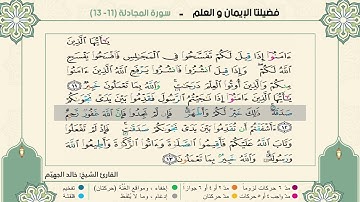 فضيلتا الإيمان و العلم - سورة المجادلة (11- 13)
يَٰٓأَيُّهَا ٱلَّذِينَ
ءَامَنُوٓا۟ إِذَا قِيلَ لَكُمْ تَفَسَّحُوا۟ فِى ٱلْمَجَٰلِسِ فَٱفْسَحُوا۟ يَفْسَحِ
ٱللَّهُ لَكُمْ وَإِذَا قِيلَ ٱنشُزُوا۟ فَٱنشُزُوا۟ يَرْفَعِ ٱللَّهُ ٱلَّذِينَ ءَامَنُوا۟
مِنكُمْ وَٱلَّذِينَ أُوتُوا۟ ٱلْعِلْمَ دَرَجَٰتٍ وَٱللَّهُ بِمَا تَعْمَلُونَ خَبِيرٌ ١١
يَٰٓأَيُّهَا ٱلَّذِينَ ءَامَنُوٓا۟ إِذَا نَٰجَيْتُمُ ٱلرَّسُولَ فَقَدِّمُوا۟ بَيْنَ يَدَىْ نَجْوَىٰكُمْ
صَدَقَةً ذَٰلِكَ خَيْرٌ لَّكُمْ وَأَطْهَرُ فَإِن لَّمْ تَجِدُوا۟ فَإِنَّ ٱللَّهَ غَفُورٌ رَّحِيمٌ
١٢ ءَأَشْفَقْتُمْ أَن تُقَدِّمُوا۟ بَيْنَ يَدَىْ نَجْوَىٰكُمْ صَدَقَٰتٍ فَإِذْ لَمْ تَفْعَلُوا۟
وَتَابَ ٱللَّهُ عَلَيْكُمْ فَأَقِيمُوا۟ ٱلصَّلَوٰةَ وَءَاتُوا۟ ٱلزَّكَوٰةَ وَأَطِيعُوا۟ ٱللَّهَ
وَرَسُولَهُۥ وَٱللَّهُ خَبِيرٌۢ بِمَا تَعْمَلُونَ ١٣
القارئ الشيخ: خالد الجهيّم
مدّ ٦ حركات لزوماً مدّ ٢ أو ٤ أو ٦ جوازاً إخفاء، ومواقع الغُنَّة (حركتان) تفخيم
مدّ واجب ٤ أو ٥ حركات مدّ حركتان إدغام، وما لا يُلفظ قلقلة